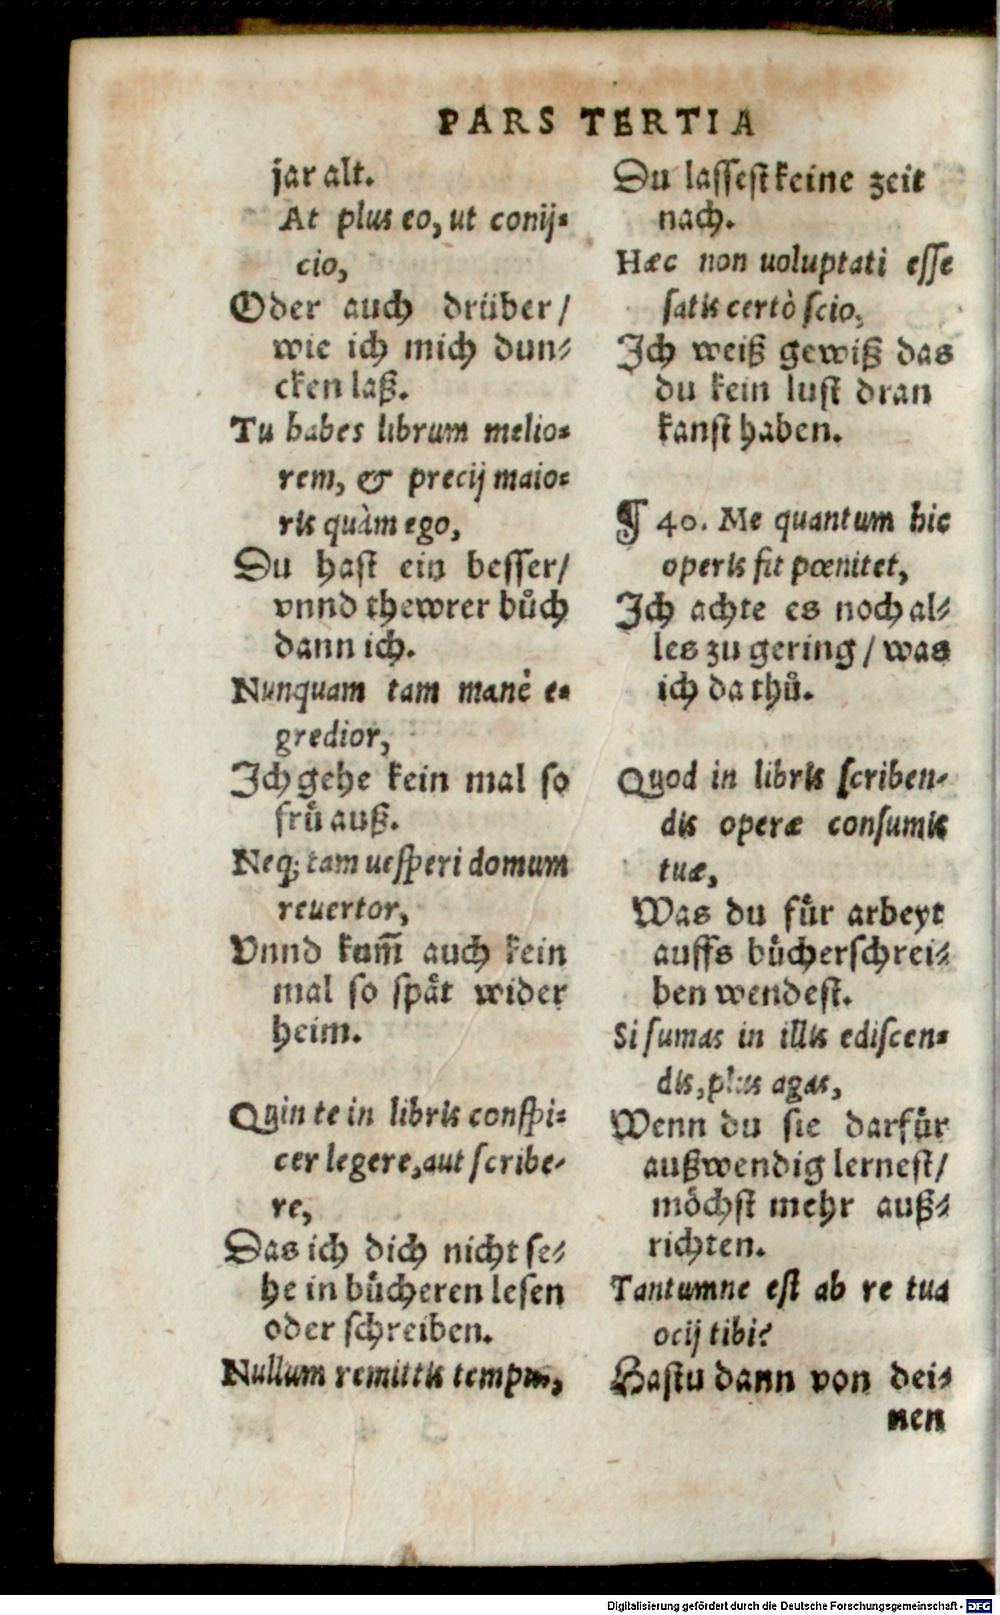 PARS TERTIA
jar alt.
At plus eo, ut conij⸗
cio,
Oder auch drüber/
wie ich mich dun⸗
cken laß.
Tu habes librum melio⸗
rem, & precij maio⸗
ris quàm ego,
Du hast ein besser/
vnnd thewrer bůch
dann ich.
Nunquam tam manè e⸗
gredior,
Ich gehe kein mal so
frů auß.
Neq; tam uesperi domum
reuertor,
Vnnd kom̃ auch kein
mal so spåt wider
heim.
Quin te in libris conspi⸗
cer legere, aut scribe⸗
re,
Das ich dich nicht se⸗
he in bůcheren lesen
oder schreiben.
Nullum remittis tempus,
Du lassest keine zeit
nach.
Hæc non uoluptati esse
satis certò scio,
Ich weiß gewiß das
du kein lust dran
kanst haben.
¶ 40. Me quantum hic
operis fit pœnitet,
Ich achte es noch al⸗
les zu gering/ was
ich da thů.
Quod in libris scriben⸗
dis operæ consumis
tuæ,
Was du für arbeyt
auffs bůcherschrei⸗
ben wendest.
Si sumas in illis ediscen⸗
dis, plus agas,
Wenn du sie darfür
außwendig lernest/
möchst mehr auß⸗
richten.
Tantumne est ab re tua
ocij tibi?
Hastu dann von dei⸗
nen
Digitalisierung gefördert durch die Deutsche Forschungsgemeinschaft - DFG